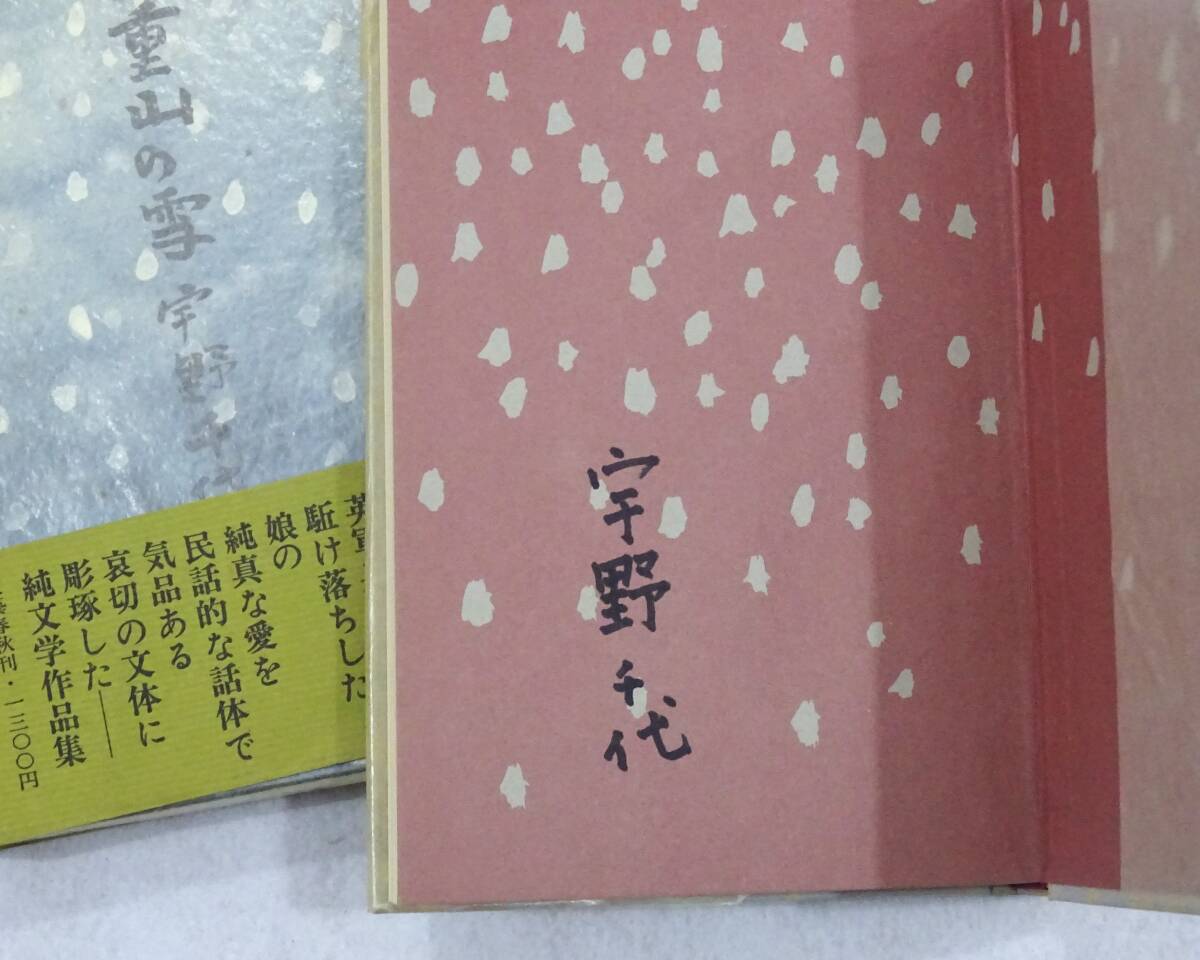 重山の雪
宇野千代
英軍
駈け落ちした
娘の
純真な愛を
民話的な話体で
気品ある
哀切の文体に
彫琢した――
純文学作品集
藝春秋刊・一三〇〇円
宇野千代